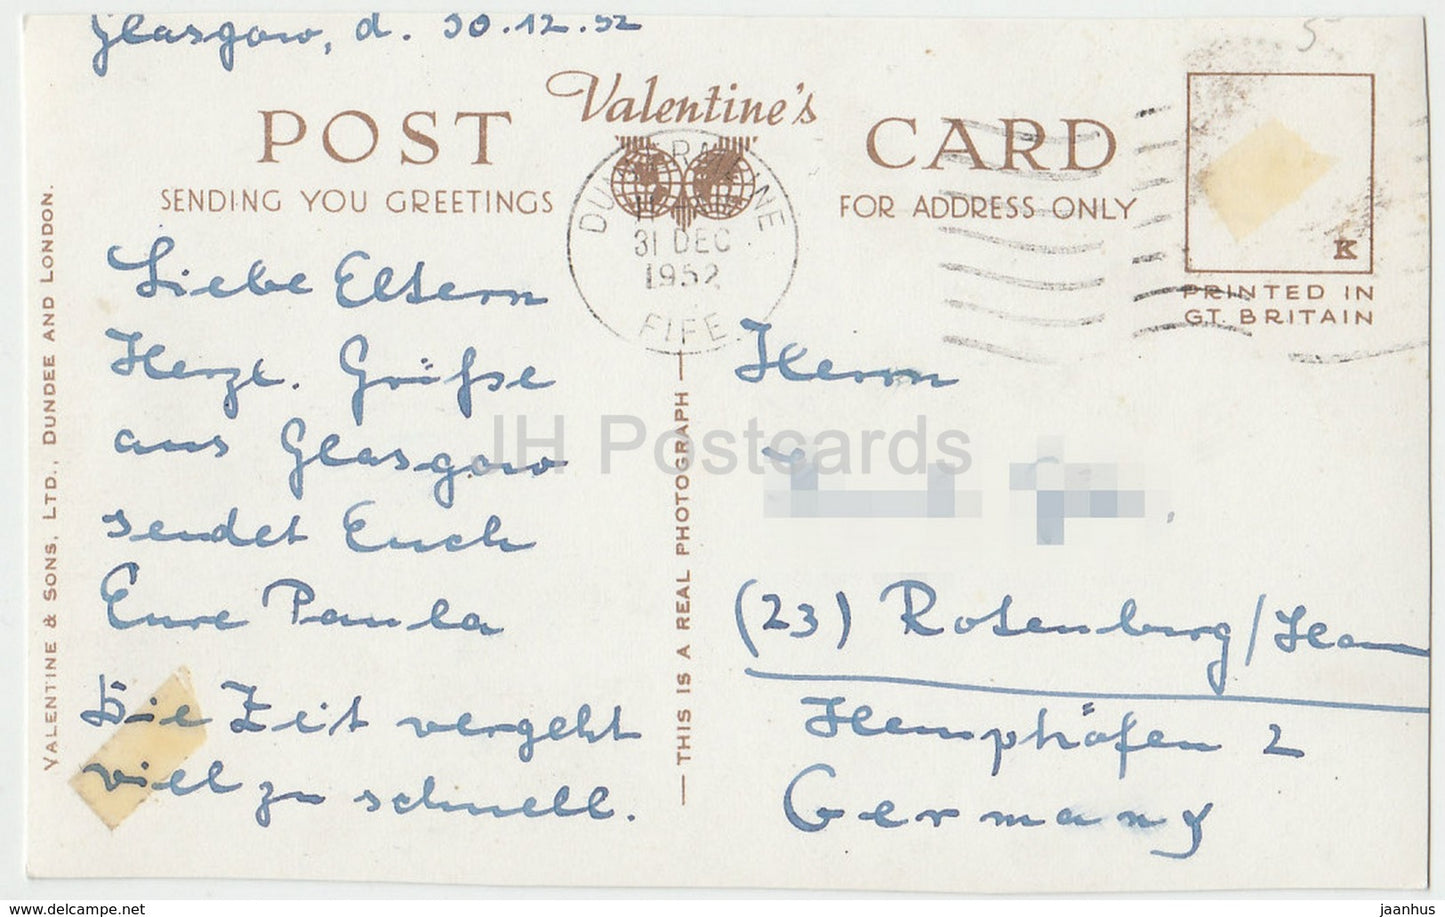 Glasgow, d. 30.12.52
Valentine's
POST CARD
SENDING YOU GREETINGS
FOR ADDRESS ONLY
31 DEC
1952
FIFE
K
PRINTED IN
GT. BRITAIN
VALENTINE & SONS, LTD., DUNDEE AND LONDON.
Liebe Eltern
Herzl. Grüße
aus Glasgow
sendet Euch
Eure Paula
Die Zeit vergeht
viel zu schnell.
— THIS IS A REAL PHOTOGRAPH —
Herrn
(23) Rotenburg/Han
Hemphöfen 2
Germany
JH Postcards
www.delcampe.net
jaanhus